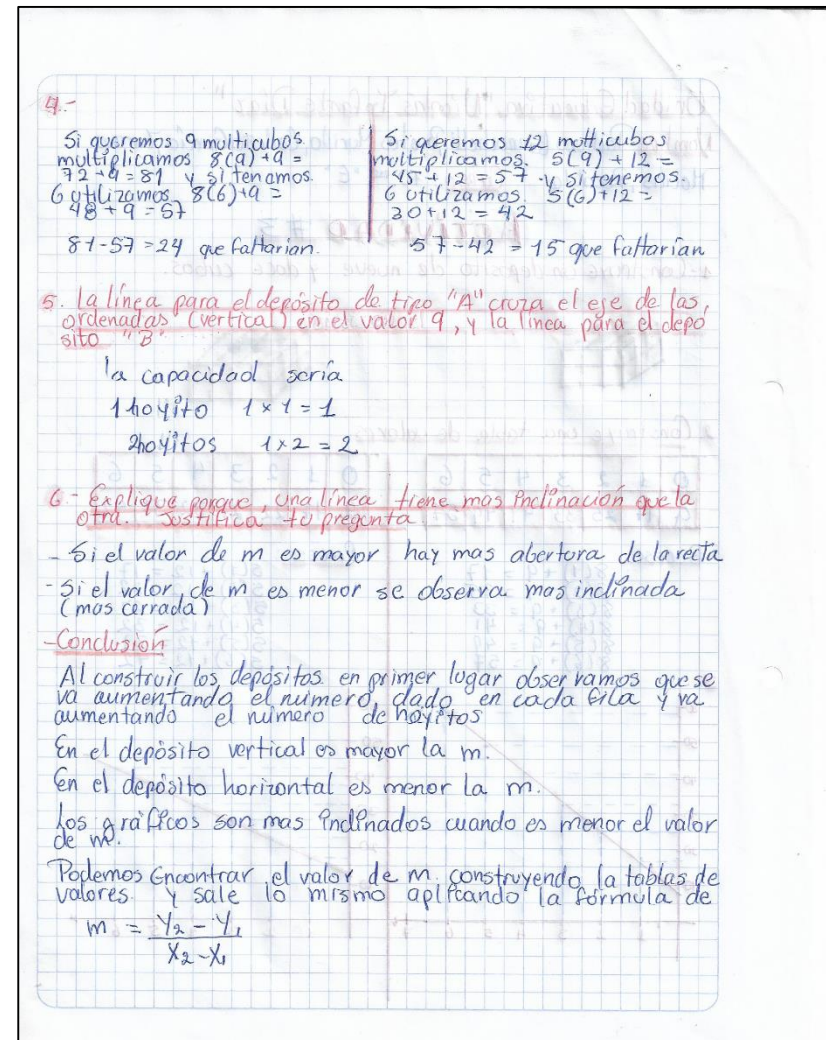 4.-
Si queremos 9 multicubos
multiplicamos 8(9)+9 =
72+9=81 y si tenamos
6 utilizamos 8(6)+9=
48+9=57
81-57=24 que faltarian.
Si queremos 12 multicubos
multiplicamos. 5(9)+12=
45+12=57 y si tenemos.
6 utilizamos 5(6)+12=
30+12=42
57-42 = 15 que faltarían
5. la línea para el depósito de tipo "A" cruza el eje de las,
ordenadas (vertical) en el valor 9, y la línea para el depó
sito "B"
la capacidad sería
1 hoyito 1x1=1
2hoyitos 1x2=2
6.- Explique porque, una línea tiene mas inclinación que la
otra. Justifica tu pregunta
- Si el valor de m es mayor hay mas abertura de la recta
- Si el valor de m es menor se observa mas inclinada
(mas cerrada)
-Conclusión
Al construir los depósitos en primer lugar observamos que se
va aumentando el número, dado en cada fila y va
aumentando el número de hoyitos
En el depósito vertical es mayor la m.
En el depósito horizontal es menor la m.
Los gráficos son mas inclinados cuando es menor el valor
de m.
Podemos Encontrar el valor de m construyendo la tablas de
valores. y sale lo mismo aplicando la fórmula de
m = Y₂ - Y₁
X₂ - X₁